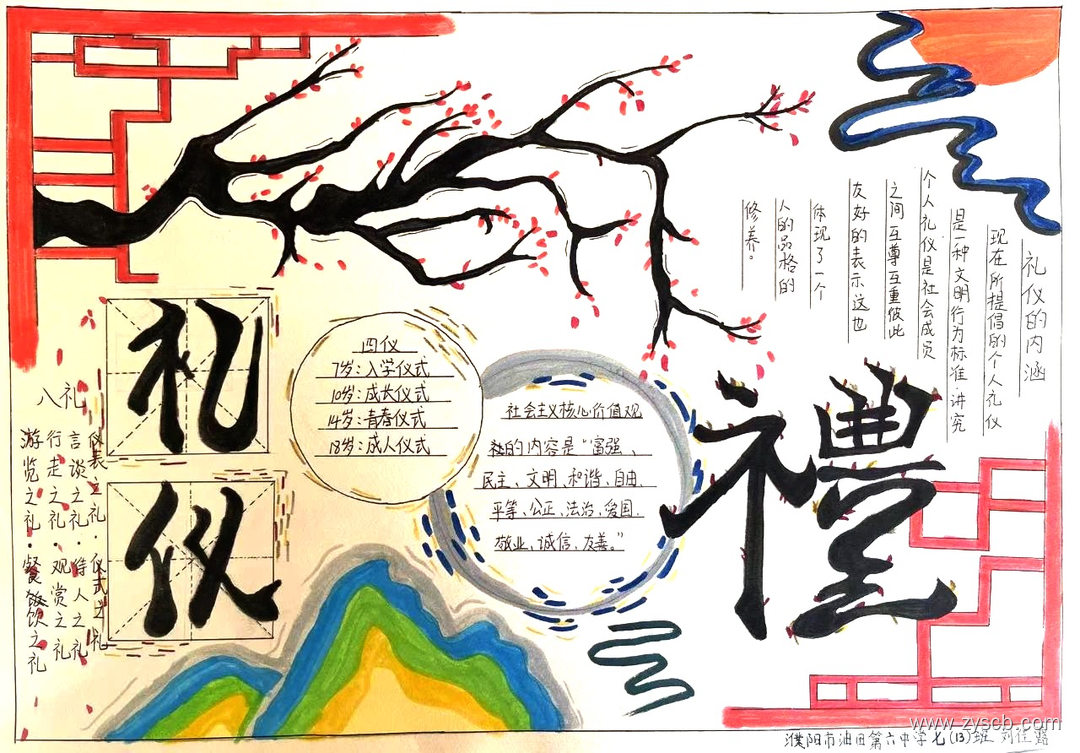 礼
仪
八礼
仪表之礼·仪式之礼
言谈之礼·待人之礼
行走之礼·观赏之礼
游览之礼·餐饮之礼
四仪
7岁:入学仪式
10岁:成长仪式
14岁:青春仪式
18岁:成人仪式
社会主义核心价值观
的内容是“富强、
民主、文明、和谐、自由、
平等、公正、法治、爱国、
敬业、诚信、友善。”
禮
礼仪的内涵
现在所提倡的个人礼仪
是一种文明行为标准.讲究
个人礼仪是社会成员
之间互尊互重彼此
友好的表示这也
体现了一个
人的品格的
修养。
濮阳市油田第六中学七(13)班 刘佳
www.zyscb.com